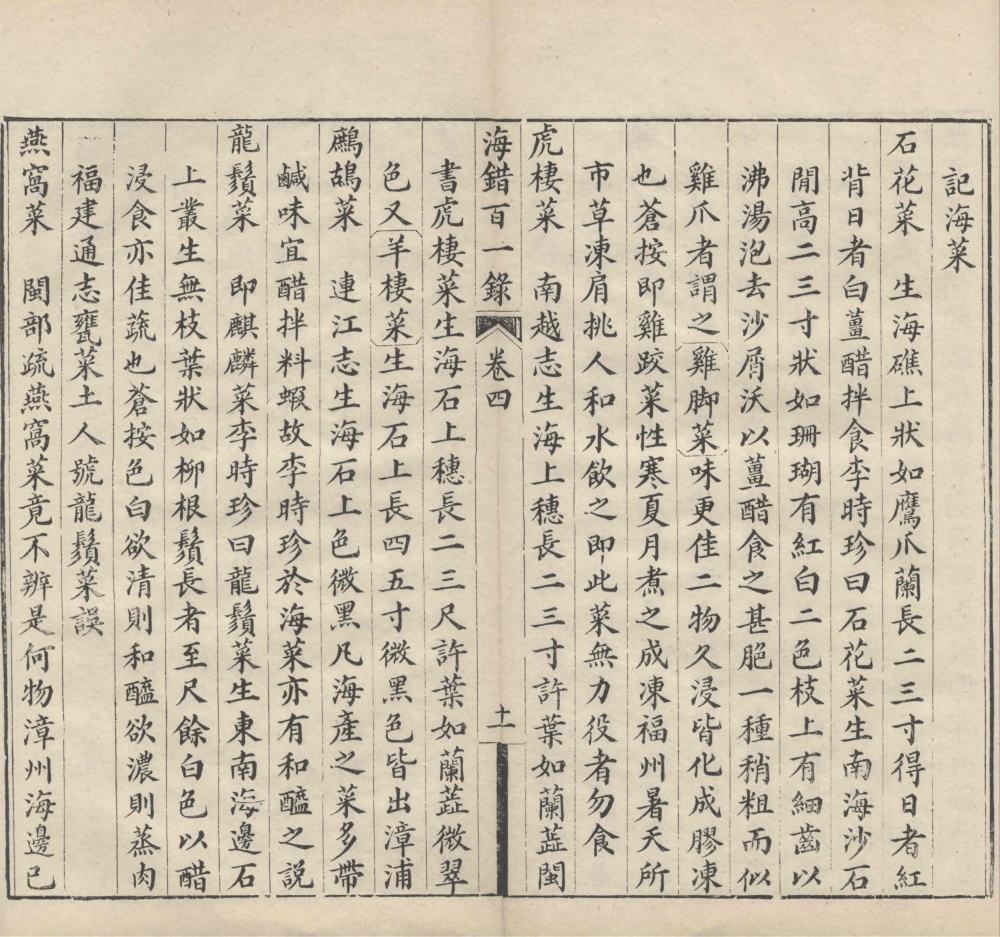 記海菜
石花菜　生海礁上狀如鷹爪蘭長二三寸得日者紅
背日者白薑醋拌食李時珍曰石花菜生南海沙石
閒高二三寸狀如珊瑚有紅白二色枝上有細齒以
沸湯泡去沙屑沃以薑醋食之甚脆一種稍粗而似
雞爪者謂之雞脚菜味更佳二物久浸皆化成膠凍
也蒼按即雞跤菜性寒夏月煮之成凍福州暑天所
市草凍肩挑人和水飲之即此菜無力役者勿食
虎棲菜　南越志生海上穗長二三寸許葉如蘭蕋閩
海錯百一錄　卷四　十一
書虎棲菜生海石上穗長二三尺許葉如蘭蕋微翠
色又羊棲菜生海石上長四五寸微黑色皆出漳浦
鷓鴣菜　連江志生海石上色微黑凡海產之菜多帶
鹹味宜醋拌料蝦故李時珍於海菜亦有和醯之說
龍鬚菜　即麒麟菜李時珍曰龍鬚菜生東南海邊石
上叢生無枝葉狀如柳根鬚長者至尺餘白色以醋
浸食亦佳蔬也蒼按色白欲清則和醯欲濃則蒸肉
福建通志甕菜土人號龍鬚菜誤
燕窩菜　閩部疏燕窩菜竟不辨是何物漳州海邊已